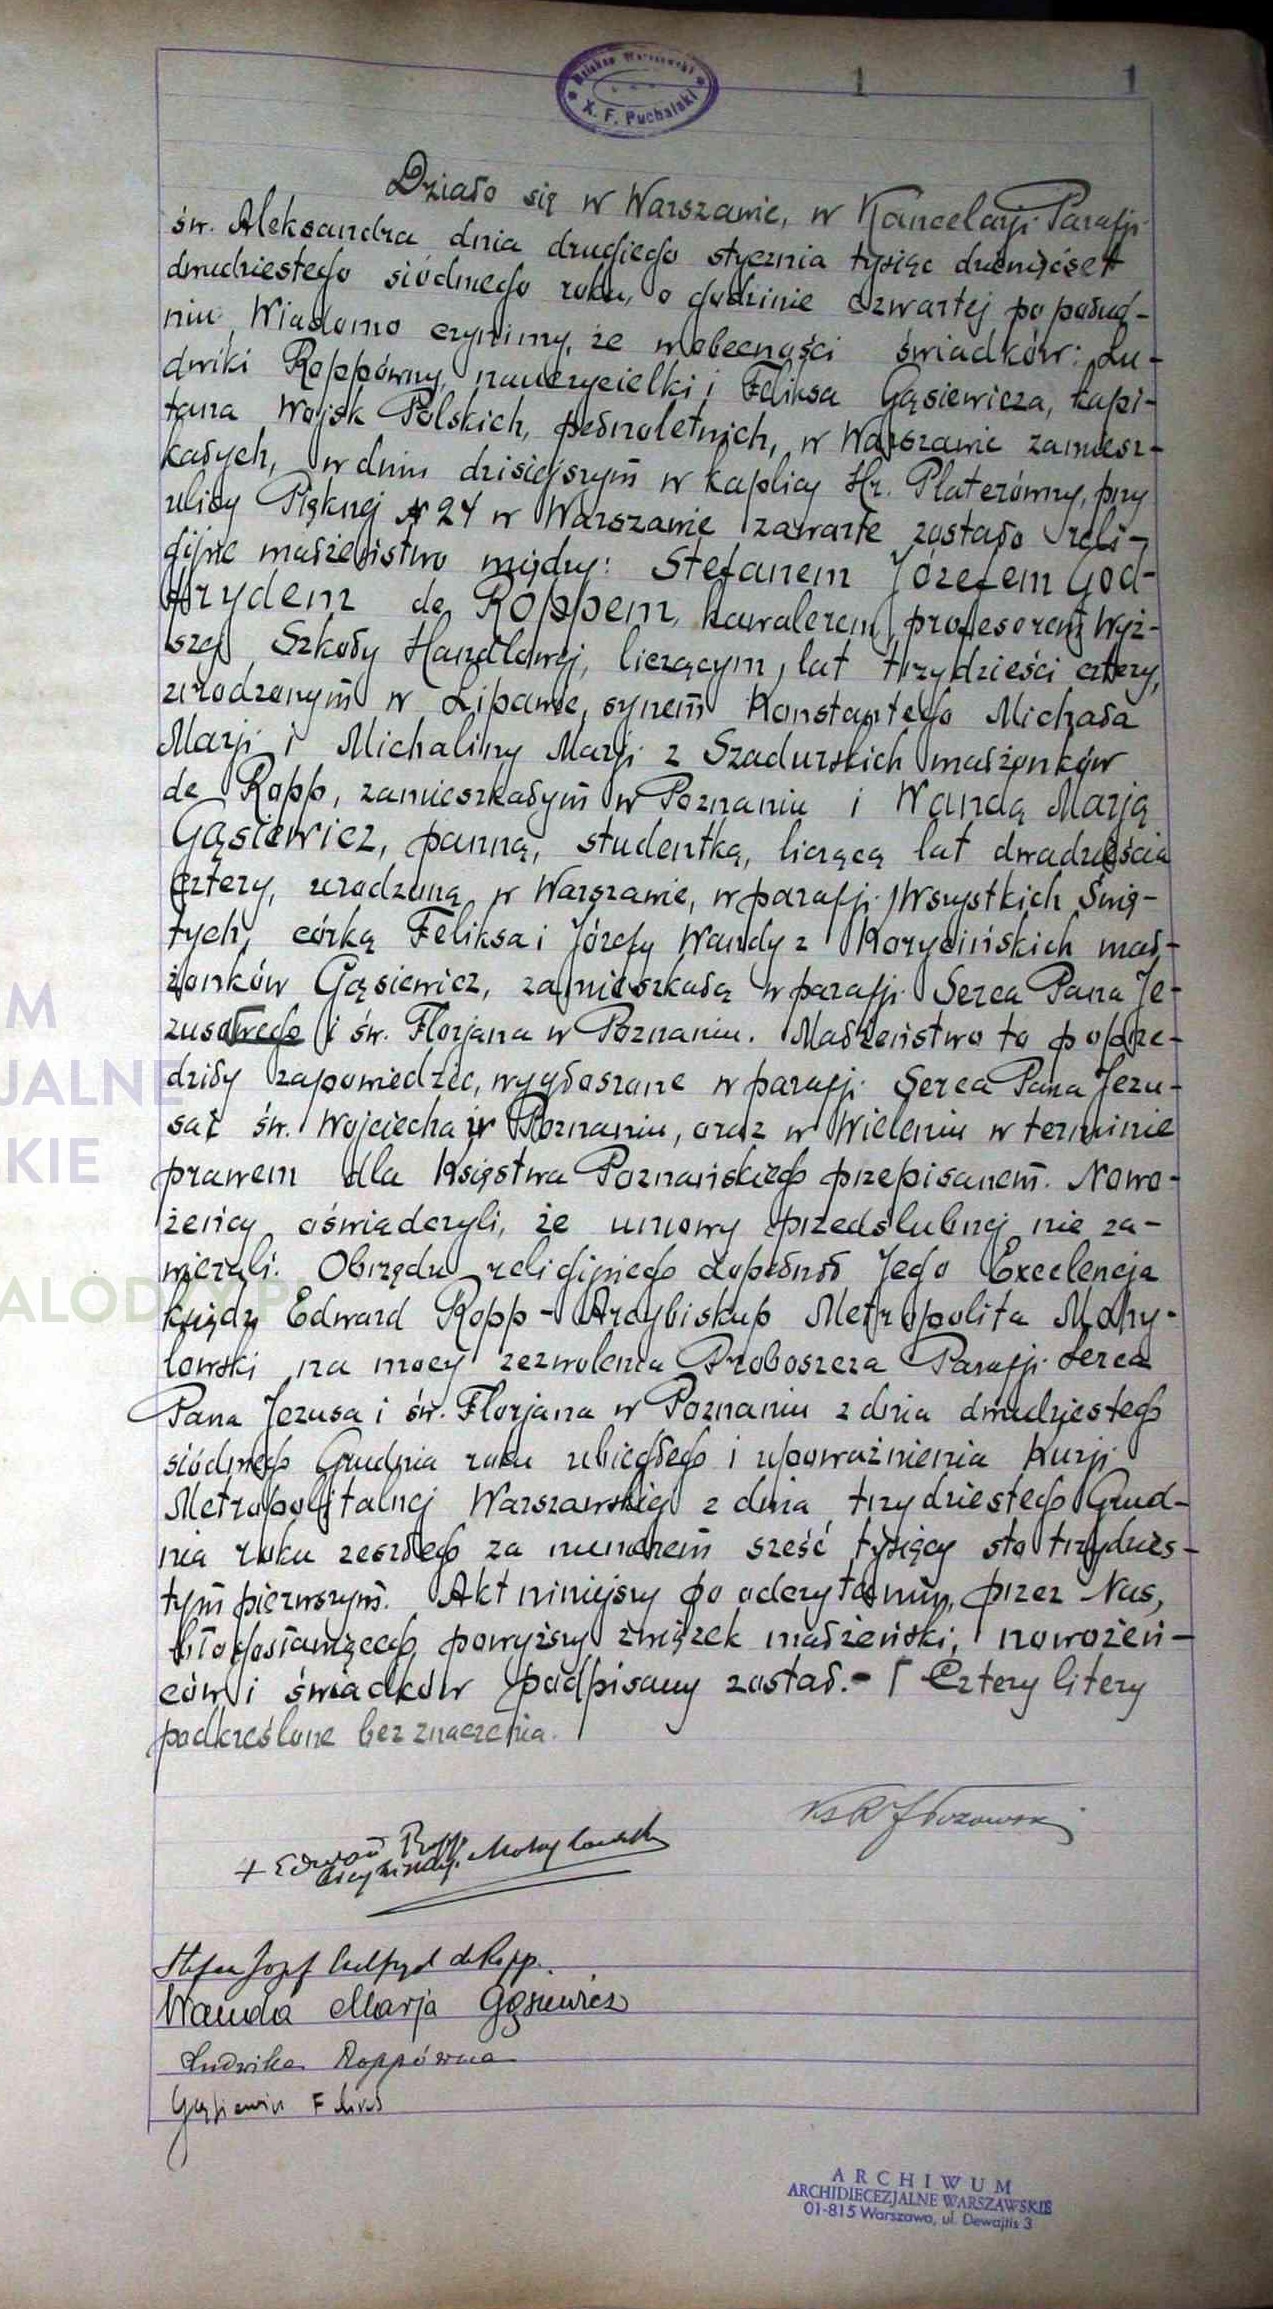 Dziekan Warszawski
X. F. Puchalski
1 1
Działo się w Warszawie, w Kancelarji Parafji
św. Aleksandra dnia drugiego stycznia tysiąc dziewięćset
dwudziestego siódmego roku, o godzinie czwartej po połud-
niu. Wiadomo czynimy, że w obecności świadków: Lu-
dwiki Roppówny, nauczycielki i Feliksa Gąsiewicza, kapi-
tana Wojsk Polskich, pełnoletnich, w Warszawie zamiesz-
kałych, w dniu dzisiejszym w kaplicy Hr. Platerówny, przy
ulicy Pięknej № 24 w Warszawie zawarte zostało reli-
gijne małżeństwo między: Stefanem Józefem God-
frydem de Roppem, kawalerem, profesorem Wyż-
szej Szkoły Handlowej, liczącym lat trzydzieści cztery,
urodzonym w Lipawie, synem Konstantego Michała
Marji i Michaliny Marji z Szadurskich małżonków
de Ropp, zamieszkałym w Poznaniu i Wandą Marją
Gąsiewicz, panną, studentką, liczącą lat dwadzieścia
cztery, urodzoną w Warszawie, w parafji Wszystkich Świę-
tych, córką Feliksa i Józefy Wandy z Korycińskich mał-
żonków Gąsiewicz, zamieszkałą w parafji Serca Pana Je-
zusowego i św. Florjana w Poznaniu. Małżeństwo to poprze-
dziły zapowiedzie, wygłoszone w parafji Serca Pana Jezu-
sa i św. Wojciecha w Poznaniu, oraz w Wieleniu w terminie
prawem dla Księstwa Poznańskiego przepisanem. Nowo-
żeńcy oświadczyli, że umowy przedślubnej nie za-
wierali. Obrzędu religijnego dopełnił Jego Excelencja
ksiądz Edward Ropp - Arcybiskup Metropolita Mohy-
lowski na mocy zezwolenia Proboszcza Parafji Serca
Pana Jezusa i św. Florjana w Poznaniu z dnia dwudziestego
siódmego Grudnia roku ubiegłego i upoważnienia Kurji
Metropolitalnej Warszawskiej z dnia trzydziestego Grud-
nia roku zeszłego za numerem sześć tysięcy sto trzydzies-
tym pierwszym. Akt niniejszy po odczytaniu, przez Nas,
błogosławiącego powyższy związek małżeński, nowożeń-
ców i świadków podpisany został. - Cztery litery
podkreślone bez znaczenia.
+ Edward Ropp
Arcybiskup Mohylowski
Stefan Józef Godfryd de Ropp.
Wanda Marja Gąsiewicz
Ludwika Roppówna
Gąsiewicz Feliks
ARCHIWUM
ARCHIDIECEZJALNE WARSZAWSKIE
01-815 Warszawa, ul. Dewajtis 3
M
JALNE
KIE
ALODZY.P